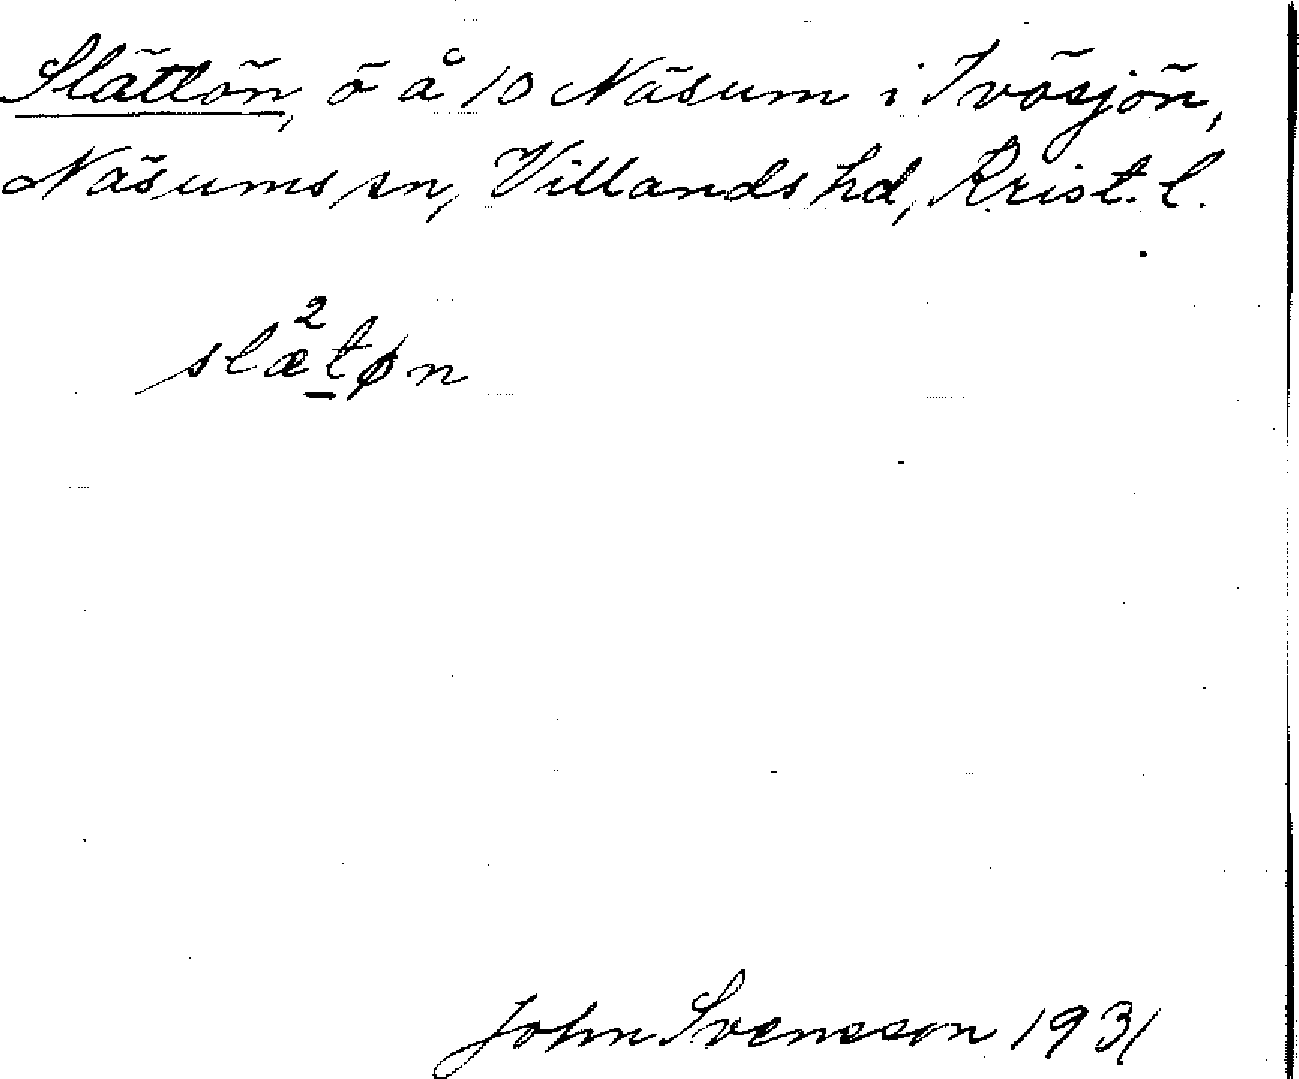 Slättön, ö å 10 Näsum i Ivösjön,
Näsums sn, Villands hd, Krist. l.
slæ²tøn
John Svensson 1931